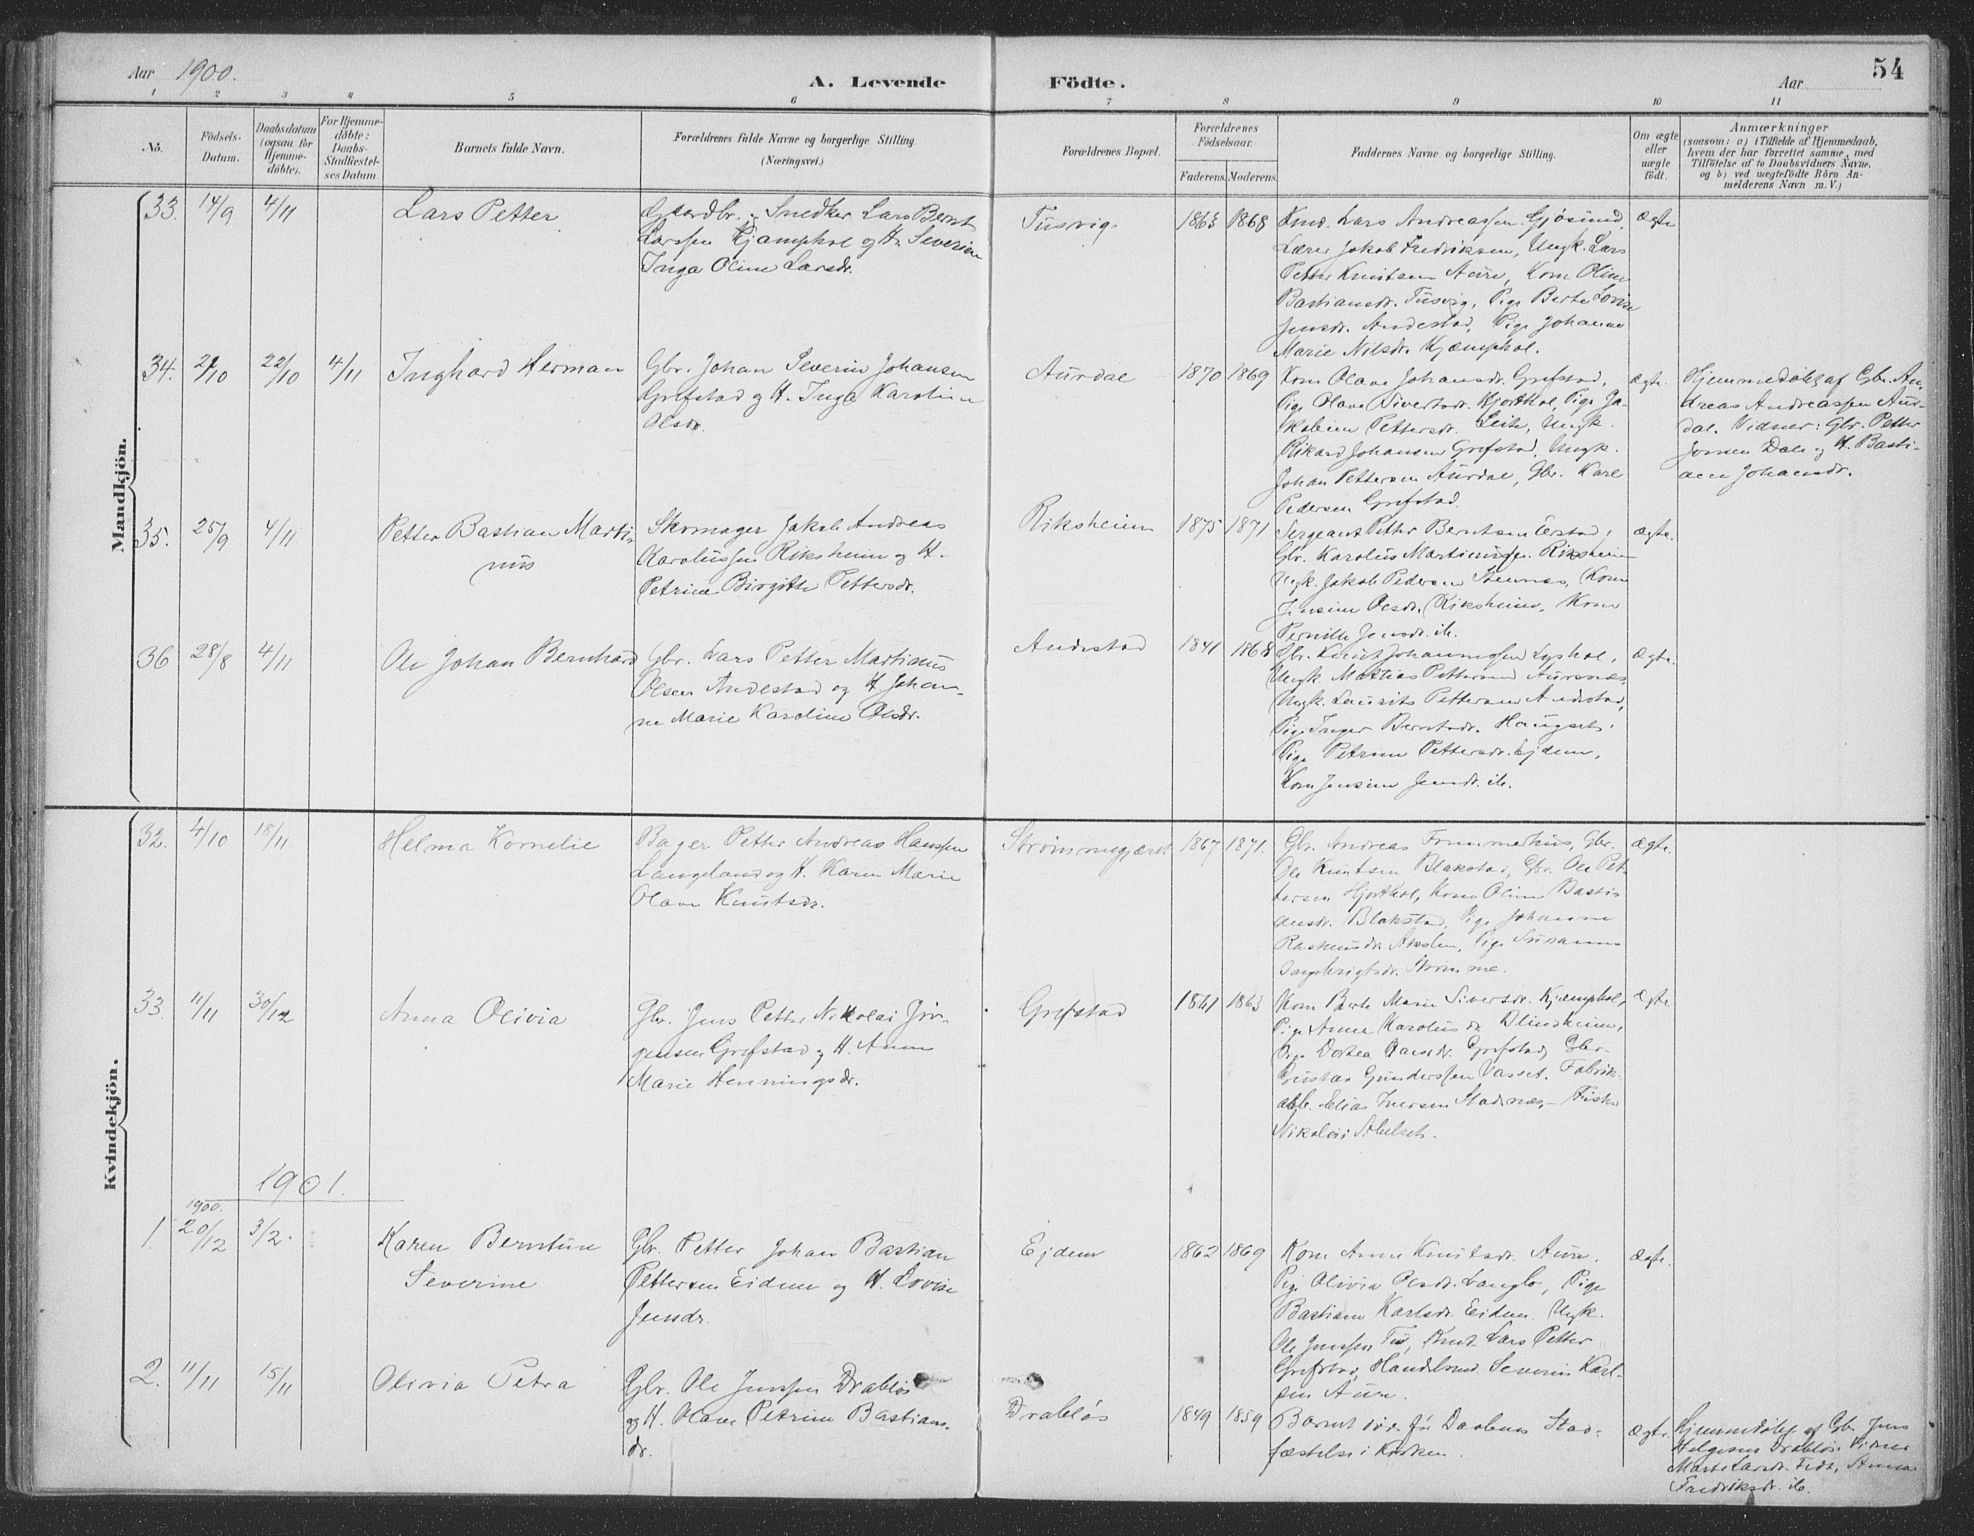 Aar 1900.
A. Levende Födte.
Aar
54
1 2 3 4 5 6 7 8 9 10 11
No.
Födsels-
Datum.
Daabsdatum
(ogsaa for
Hjemme-
döbte).
For Hjemme-
döbte:
Daabs-
Stadfæstel-
ses Datum.
Barnets fulde Navn.
Forældrenes fulde Navne og borgerlige Stilling
(Næringsvei.)
Forældrenes Bopæl.
Forældrenes
Födselsaar.
Faderens. Moderens.
Faddernes Navne og borgerlige Stilling.
Om ægte
eller
uægte
födt.
Anmærkninger
(saasom: a) i Tilfælde af Hjemmedaab,
hvem der har forrettet samme, med
Tilföielse af to Daabsvidners Navne.
og b) ved uægtefödte Börn An-
melderens Navn m. V.)
Mandkjön.
33. 14/9 4/11
Lars Petter
Gaardbr. Snedker Lars Bernt
Larssen Kjæmphol og H. Severin
Inga Oline Larsdr.
Tusvig
1863 1868
Kmd. Lars Andreassen Gjösund,
Lærer Jakob Fredriksen, Ungk. Lars
Petter Knutsen Aure, Kone Oline
Bastiansdr. Tusvig, Pige Berte Lovise
Jensdr. Andestad, Pige Johanne
Marie Nilsdr. Kjæmphol.
Ægte
34. 2/10 22/10 4/11
Inghard Herman
Gbr. Johan Severin Johansen
Grefstad og H. Inga Karoline
Olsdr.
Aurdal
1870 1869
Kone Olave Johansdr. Grefstad,
Pige Olave Sivertsdr. Hjorthol, Pige Ja-
kobine Pettersdr. Ungk.
Rikard Johansen Grefstad, Ungk.
Johan Pettersen Aurdal, Gbr. Karl
Pedersen Grefstad.
Ægte.
Hjemmedöbt af Gbr. An-
dreas Andreassen Aur-
dal. Vidner: Gbr. Petter
Jonsen Dale og H. Basti-
ane Johansdr.
35. 25/9 4/11
Petter Bastian Marti-
nus
Skomager Jakob Andreas
Karolussen Riksheim og H.
Petrine Birgitte Pettersdr.
Riksheim
1875 1871
Sergeant Petter Berntsen
Gbr. Karolus Martinussen Riksheim
Ungk. Jakob Pedersen Steinnes, Kone
Jensine Olsdr. Riksheim, Kone
Pernille Jensdr. ib.
Ægte.
36 28/8 4/11
Ole Johan Bernhard
Gbr. Lars Petter Martinus
Olsen Andestad og H. Johan-
ne Marie Karoline Olsdr.
Andestad
1841 1868
Gbr. Knut Johannessen Lyshol,
Ungk. Mattias Pettersen Aursnes
Ungk. Laurits Pettersen Andestad,
Pige Inger Berntsdr. Haugset,
Pige Petrine Pettersdr. Ejdem,
Kone Jensine Jensdr. ib.
Ægte.
Kvindekjön.
32. 4/10 18/11
Helma Kornelie
Bager Petter Andreas Hansen
Langeland og H. Karen Marie
Olave Knutsdr.
Strömmegjerdet
1867 1871
Gbr. Andreas Frømmerhus, Gbr.
Ole Knutsen Blakstad, Gbr. Ole Pet-
tersen Hjorthol, Kone Oline Basti-
ansdr. Blakstad, Pige Johanne
Rasmusdr. Akslen, Pige Susanne
Ingebrigtsdr. Strömme.
Ægte.
33. 11/11 30/12
Anna Olivia
Gbr. Jens Petter Nikolai Jör-
gensen Grefstad og H. Anne
Marie Henningsdr.
Grefstad
1861 1863
Kone Berte Marie Siversdr. Kjæmphol,
Pige Anne Karolusdr. Blindheim,
Pige Dortea Hansdr. Grefstad, Gbr.
Gustav Gunderssen Vasset. Fabrik-
arb. Elias Iversen Stadsnes, Fisker
Nikolai
Ægte.
1901.
1. 1900. 20/12 3/2.
Karen Berntine
Severine
Gbr. Petter Johan Bastian
Pettersen Eidem og H. Lovise
Jensdr.
Ejdem
1862 1869
Kone Anne Knutsdr. Aure.
Pige Olivia Olsdr. Langlo, Pige
Bastiane Karlsdr. Eidem. Ungk.
Ole Jenssen Tu, Knut Lars Petter
Grefstad, Handelsmd. Severin Karl-
sen Aure.
Ægte.
2. 11/11 15/11
Olivia Petra
Gbr. Ole Jenssen Drabløs
og H. Olave Petrine Bastians-
dr.
Drabløs
1849 1859
Barnet döde för Daabens Stad-
fæstelse i Kirken.
Ægte.
Hjemmedöbt af Gbr. Jens
Helgesen Drabløs. Vidner
Marte Larsdr. Fedt, Anna
Fredriksdr. ib.